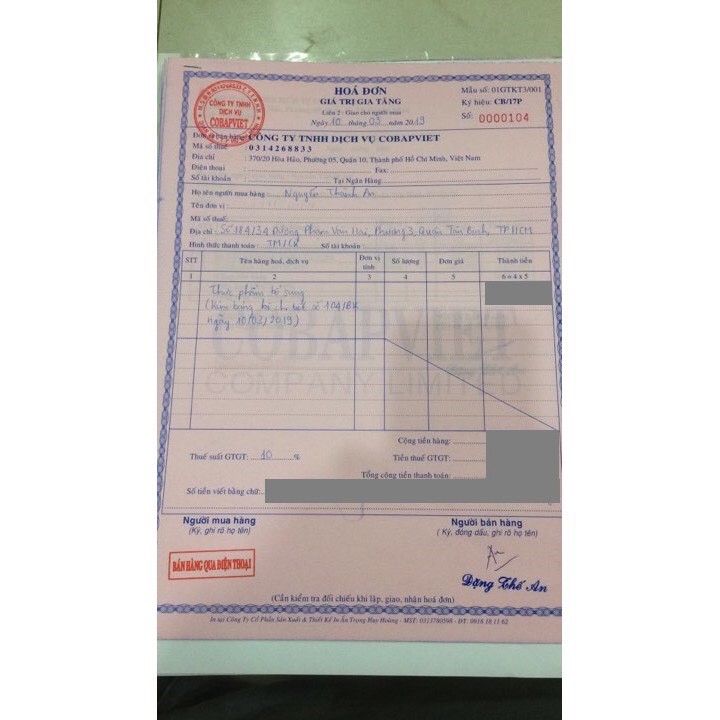 HOÁ ĐƠN
GIÁ TRỊ GIA TĂNG
Liên 2 : Giao cho người mua
Ngày 10 tháng 03 năm 2019
Mẫu số: 01GTKT3/001
Ký hiệu: CB/17P
Số: 0000104
CÔNG TY TNHH
DỊCH VỤ
COBAPVIET
Đơn vị bán hàng: CÔNG TY TNHH DỊCH VỤ COBAPVIET
Mã số thuế : 0314268833
Địa chỉ : 370/20 Hòa Hảo, Phường 05, Quận 10, Thành phố Hồ Chí Minh, Việt Nam
Điện thoại : Fax:
Số tài khoản : Tại Ngân Hàng:
Họ tên người mua hàng : Nguyễn Thành An
Tên đơn vị :
Mã số thuế:
Địa chỉ : Số 184/34 Đường Phạm Văn Hai, Phường 3, Quận Tân Bình, TP HCM
Hình thức thanh toán : TM/CK Số tài khoản:
STT Tên hàng hoá, dịch vụ Đơn vị tính Số lượng Đơn giá Thành tiền
1 2 3 4 5 6=4x5
Thực phẩm bổ sung
(Kèm bảng kê chi tiết số 104/BK
ngày 10/03/2019)
COBAPVIET
COMPANY LIMITED
Cộng tiền hàng:
Thuế suất GTGT: 10 % Tiền thuế GTGT:
Tổng cộng tiền thanh toán:
Số tiền viết bằng chữ:
Người mua hàng Người bán hàng
(Ký, ghi rõ họ tên) ( Ký, đóng dấu, ghi rõ họ tên)
BÁN HÀNG QUA ĐIỆN THOẠI
Đặng Thế An
(Cần kiểm tra đối chiếu khi lập, giao, nhận hoá đơn)
In tại Công Ty Cổ Phần Sản Xuất & Thiết Kế In Ấn Trọng Huy Hoàng - MST: 0313780598 - ĐT: 0918 18 11 62